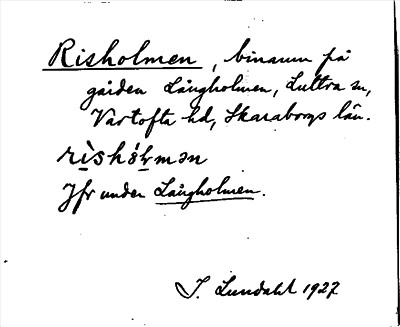 Risholmen, binamn på
gården Långholmen, Luttra sn,
Vartofta hd, Skaraborgs län.
Jfr under Långholmen.
I. Lundahl 1927